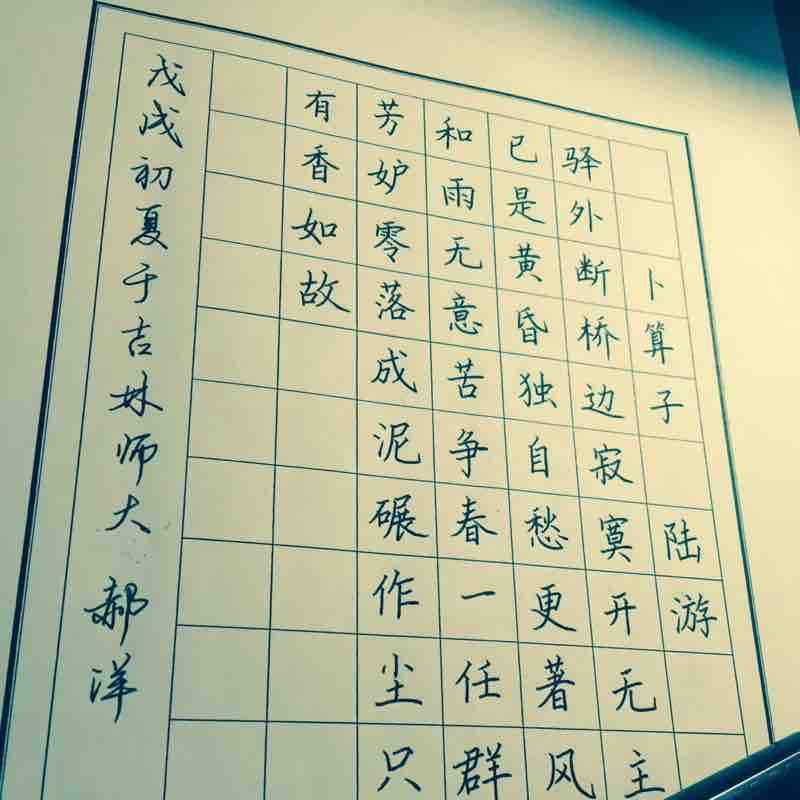 卜算子 陆游
驿外断桥边寂寞开无主
已是黄昏独自愁更著风
和雨无意苦争春一任群
芳妒零落成泥碾作尘只
有香如故
戊戌初夏于吉林师大 郝洋